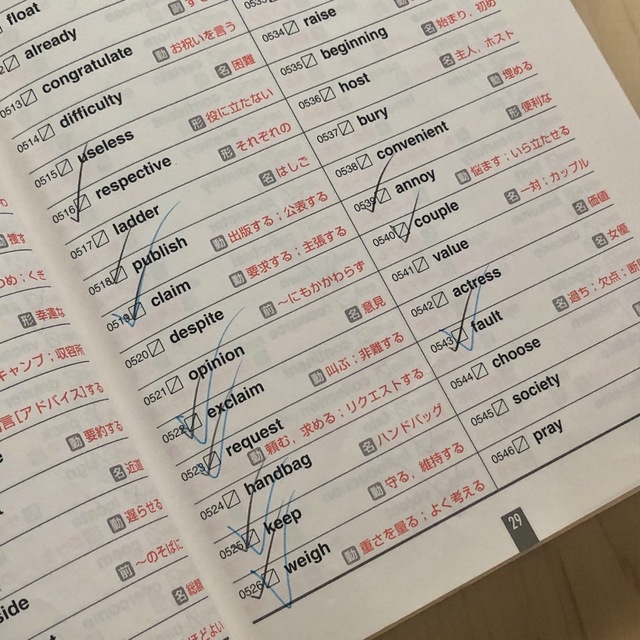 float
already
0513 congratulate 動 お祝いを言う
0514 difficulty 名 困難
0515 useless 形 役に立たない
0516 respective 形 それぞれの
0517 ladder 名 はしご
0518 publish 動 出版する；公表する
0519 claim 動 要求する；主張する
0520 despite 前 〜にもかかわらず
0521 opinion 名 意見
0522 exclaim 動 叫ぶ；非難する
0523 request 動 頼む，求める；リクエストする
0524 handbag 名 ハンドバッグ
0525 keep 動 守る，維持する
0526 weigh 動 重さを量る；よく考える
0534 raise
0535 beginning 名 始まり，初め
0536 host 名 主人，ホスト
0537 bury 動 埋める
0538 convenient 形 便利な
0539 annoy 動 悩ます；いら立たせる
0540 couple 名 一対；カップル
0541 value 名 価値
0542 actress 名 女優
0543 fault 名 過ち；欠点；断層
0544 choose
0545 society
0546 pray
29
動 捜す
形 幸運な
キャンプ；収容所
言［アドバイス］する
動 要約する
名 近道
動 遅らせる
前 〜のそばに
名 総額
side
ほどよい